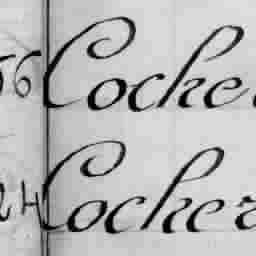 56 Cocke
24 Cocker